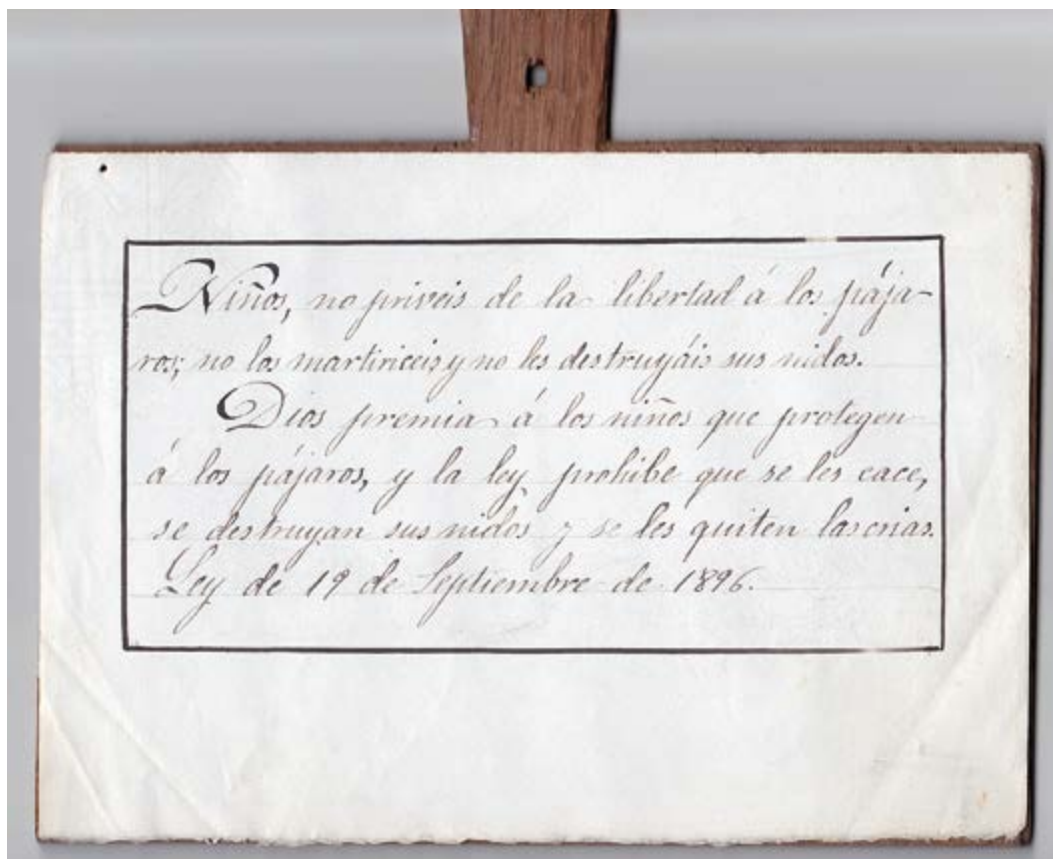 Niños, no priveis de la libertad á los pája-
ros; no los martiriceis y no les destruyáis sus nidos.
Dios premia á los niños que protegen
á los pájaros, y la ley prohibe que se les cace,
se destruyan sus nidos y se les quiten las crias.
Ley de 19 de Septiembre de 1896.